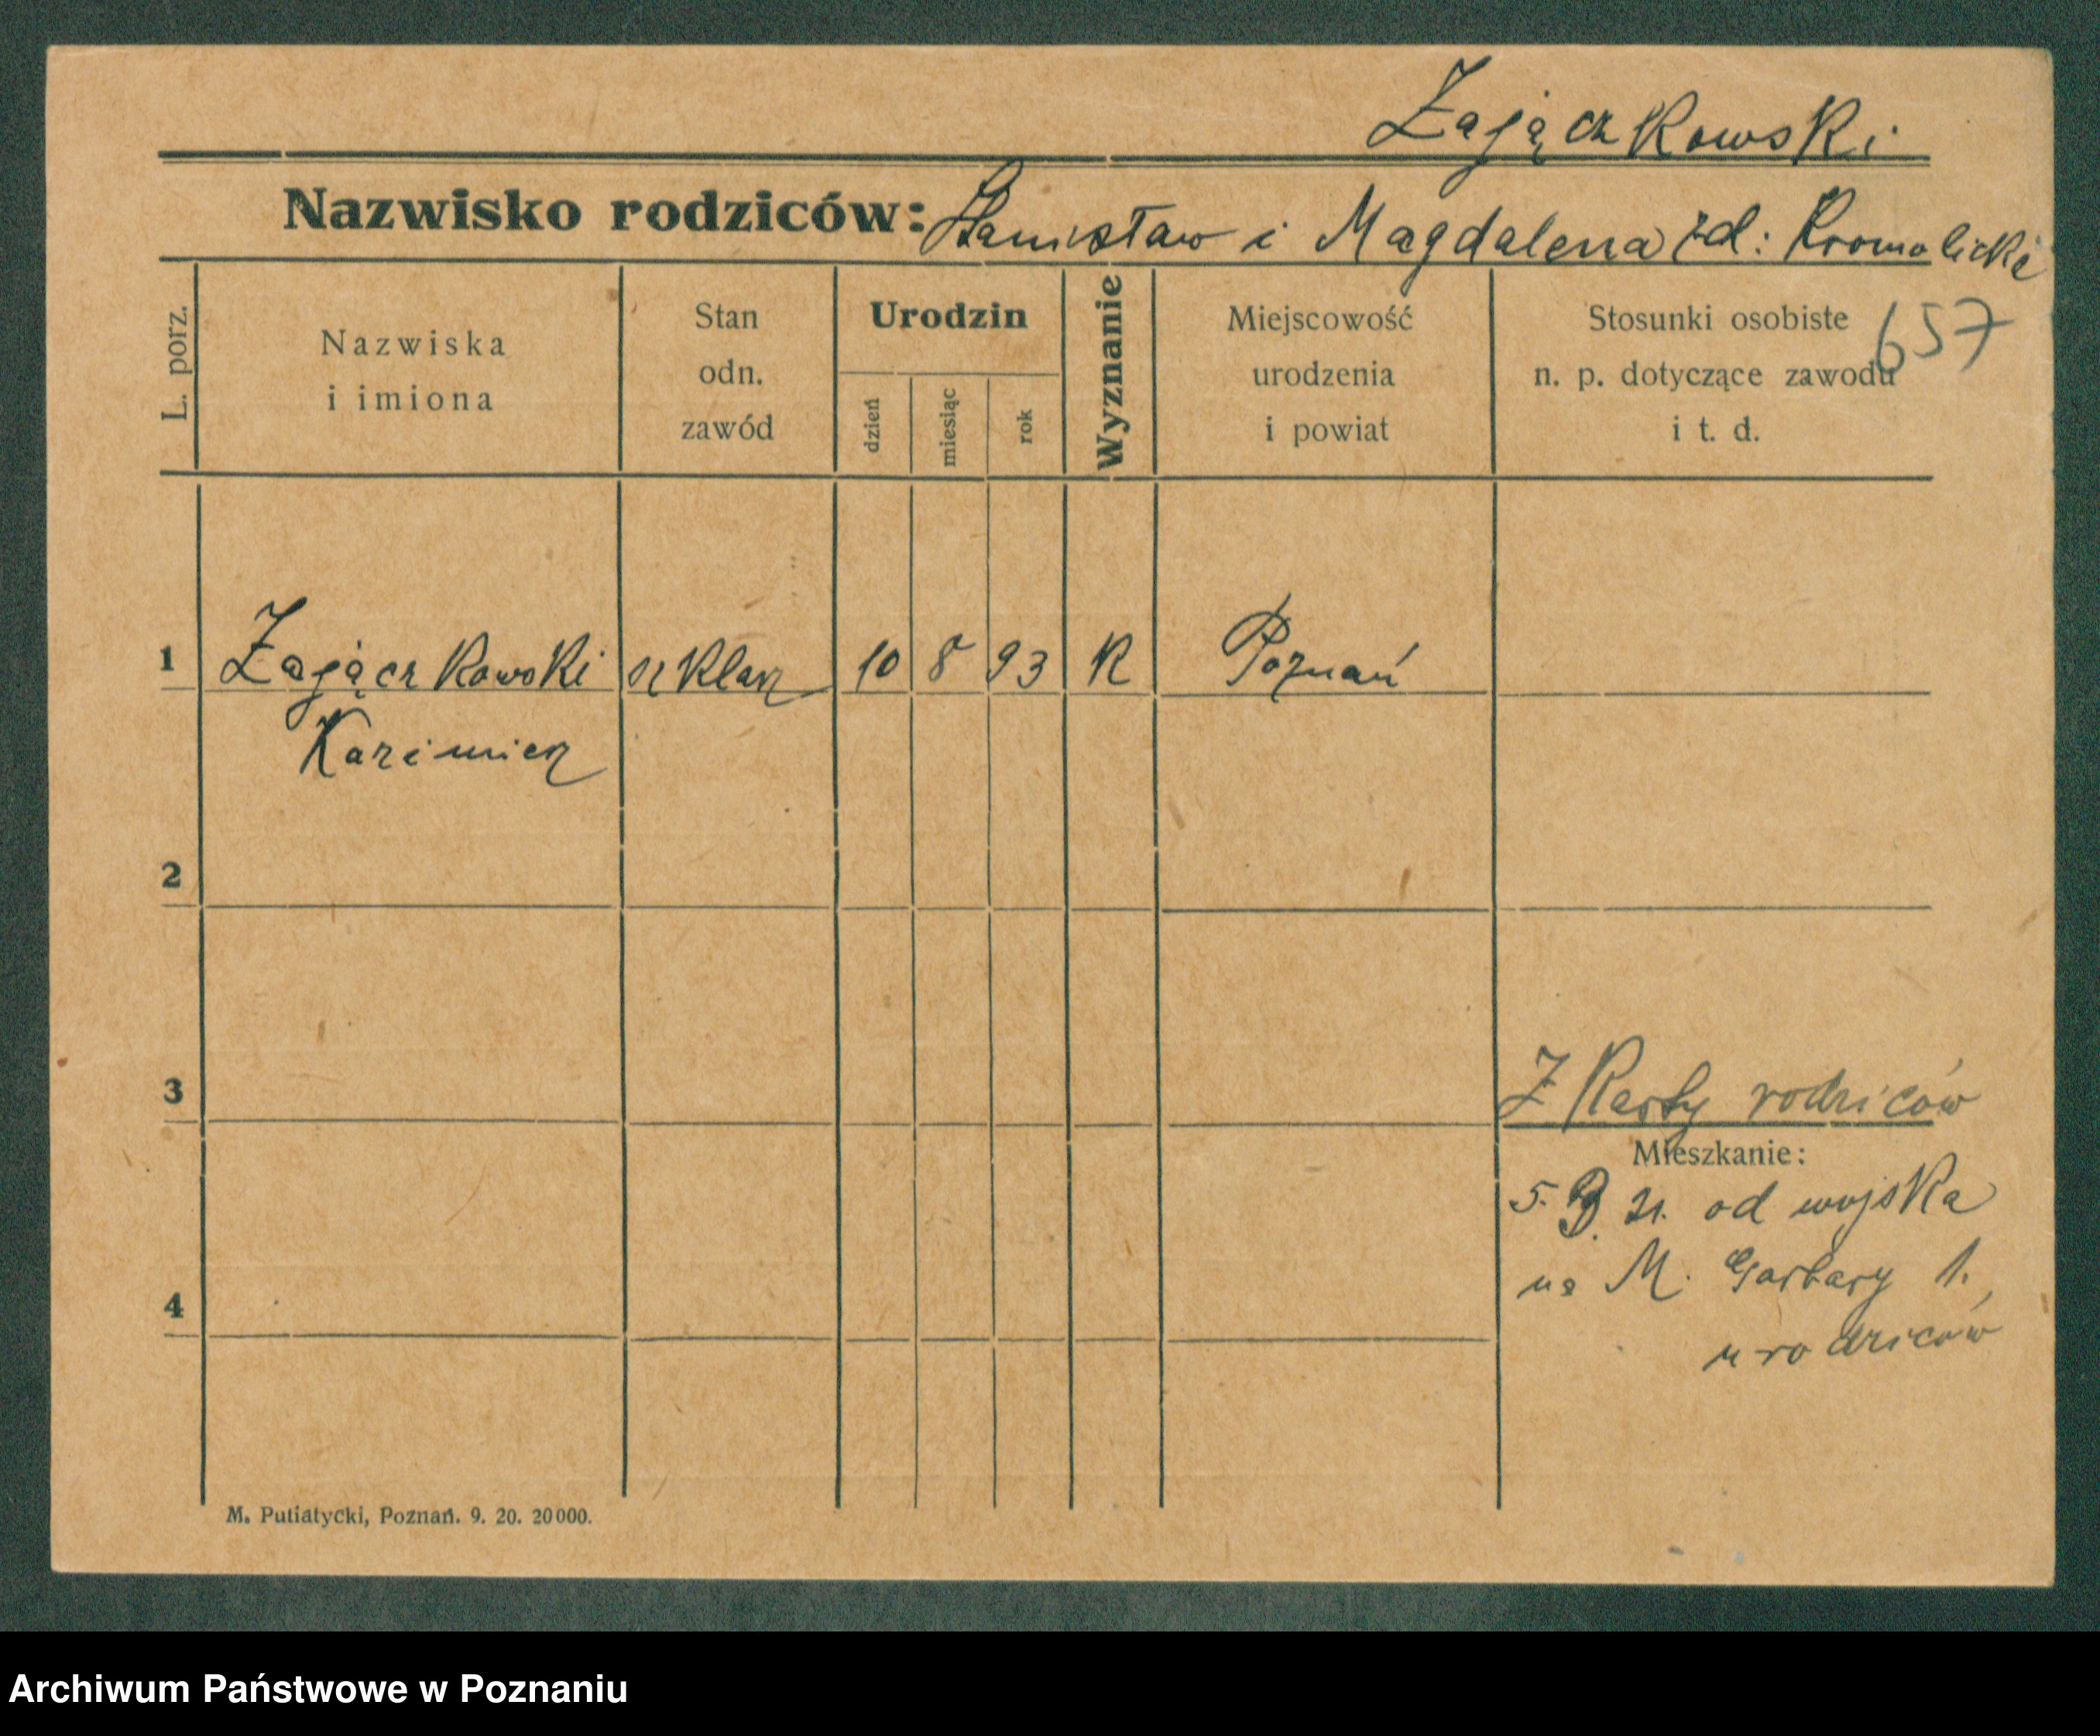 Zajączkowski
Nazwisko rodziców: Stanisław i Magdalena zd: Kromolicka
657
L. porz.
Nazwiska
i imiona
Stan
odn.
zawód
Urodzin
dzień
miesiąc
rok
Wyznanie
Miejscowość
urodzenia
i powiat
Stosunki osobiste
n. p. dotyczące zawodu
i t. d.
1 Zajączkowski szklarz 10 8 93 K Poznań
Kazimierz
2
3
Z Karty rodziców
Mieszkanie:
5. 21. od wojska
na M. Garbary 1.,
u rodziców
4
M. Putiatycki, Poznań. 9. 20. 20000.
Archiwum Państwowe w Poznaniu